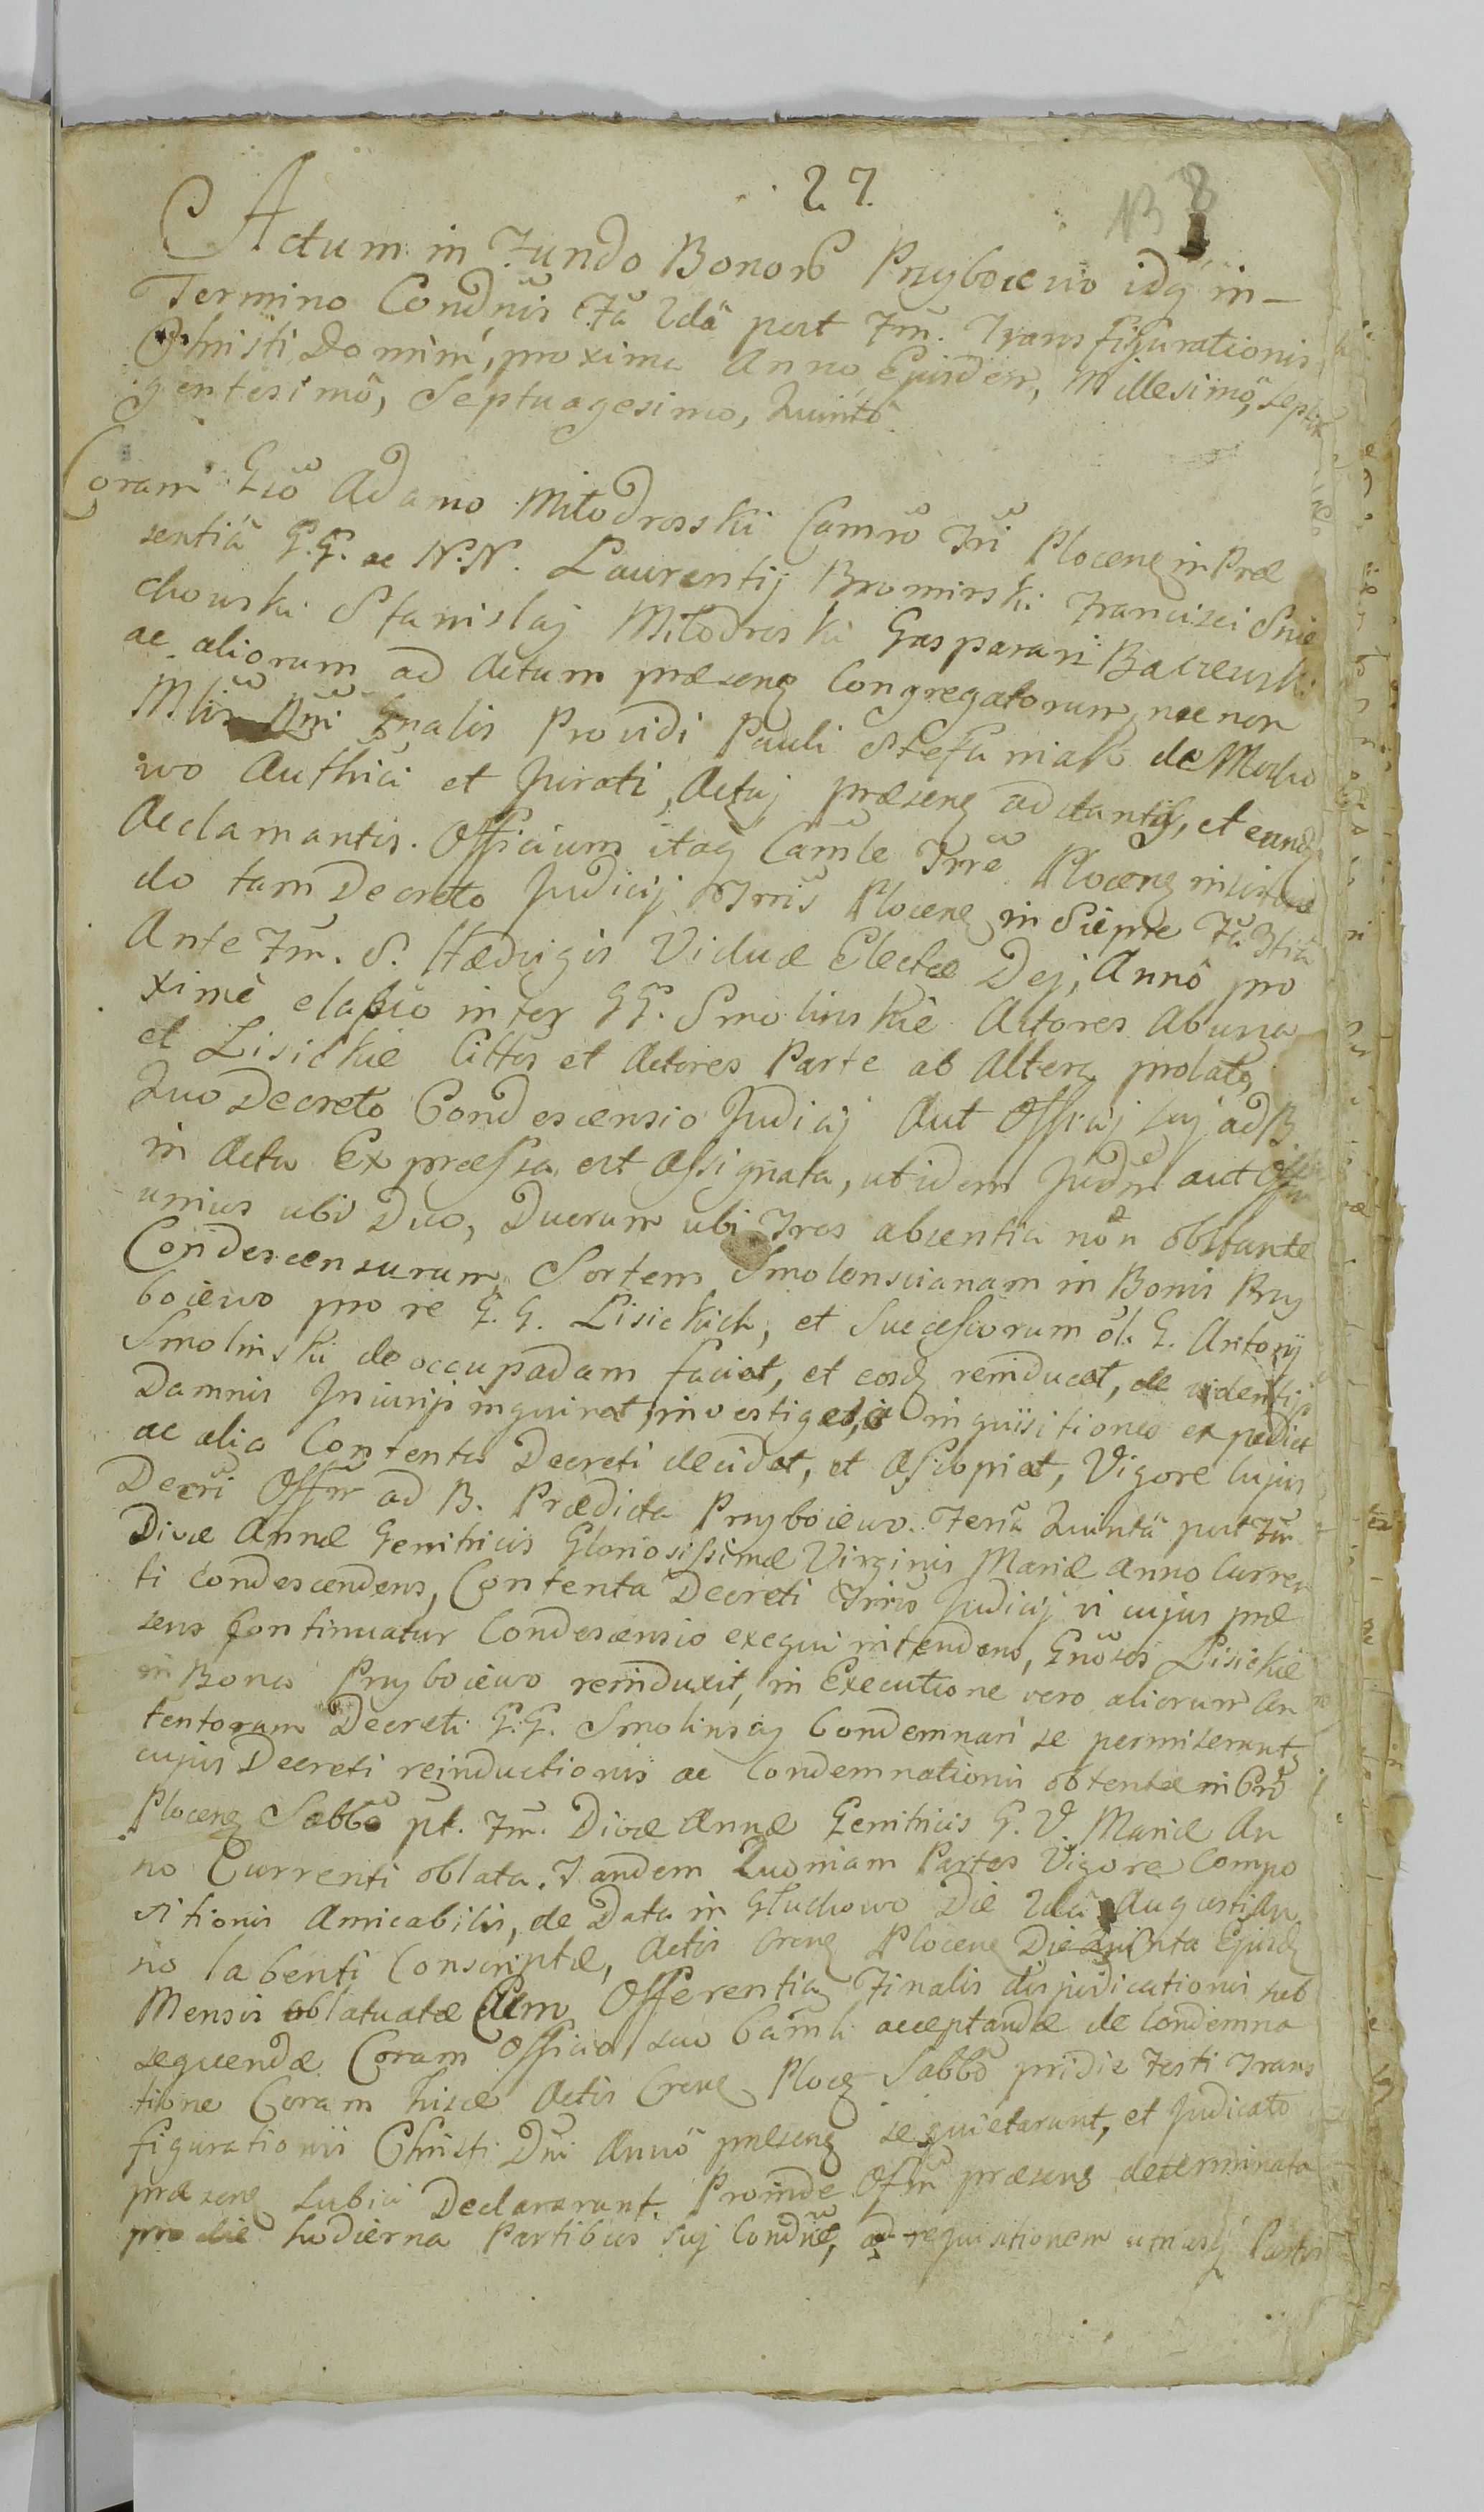 27.
NB 8
Actum in Fundo Bonorũ Przyboiewo idq̃ in-
Termino Condñis Fã 2dâ post Fm̃. Transfigurationis
Christi Domini, proxima Anno Ejusdem, Millesimô, Septin
gentesimô, Septuagesimo, Quintô.
Coram Gsõ Adamo Miłodrosski Camrõ Tri Plocenȝ in Præ
sentiâ G.G. ac N.N. Laurentij Bromirski Francisci Snie
chowski Stanislaj Miłodroski Gasparari Bacrewski
ac aliorum ad Actum præsenȝ Congregatorum, nec non
Mlis Rni Gnalis Providi Pauli Stefaniak de Mocho
wo Authici et Jurati, Actuj præsenȝ adstantis, et eundȝ
Acclamantis. Officium itaq̃ Camle Trre Plocenȝ insistendo
do tam Decreto Judicij Trris Plocenȝ in Siepre Fã 3tiâ
Ante Fm̃. S. Hædvigis Viduæ Electæ Dej, Annô pro
ximè elapso inter GG. Smolinskie Actores Ab una
et Lisickie Cittos et Actores Parte ab Altera prolato,
Quo Decreto Condescensio Judicij Aut Officij suj ad B.
in Actu Expressa est Assignata, ut idem Judm̃ aut Offm̃
unius ubi Duo, Duorum ubi Tres absentia non obstante
Condescensurum, Sortem Smolenscianam in Bonis Przy
boiewo pro re G.G. Lisickich, et Successorum ol. G. Antonij
Smolinski deoccupadam faciat, et eosdȝ reinducat, de videntijs
Damnis Injurijs inquirat, investiget, inquisitiones expediat
ac alia Contenta Decreti decidat, et Ascopiat, Vigore cujus
Decri Offm̃ ad B. Prædicta Przyboiewo. Feriâ Quintâ post Fm̃
Divæ Annæ Genitricis Gloriosissimæ Virginis Mariæ Anno Curren
ti Condescendens, Contenta Decreti Trris Judicij vi cujus præ
sens Continuatur Condescensio exequi intendens, Gñosos Lisickie
in Bona Przyboiewo reinduxit, in Executione vero aliorum Con
tentorum Decreti G.G. Smolinscy Condemnari se permiserunt,
cujus Decreti reinductionis ac Condemnationis obtentæ in Crõ
Plocenȝ Sabbõ pt. Fm̃. Divæ Annæ Genitricis G. V. Mariæ An
no Currenti oblata. Tandem Quoniam Partes Vigore Compo
sitionis Amicabilis, de Data in Głuchowo Die 2dâ Augusti An
no labenti Conscriptæ, Actis Crenȝ Plocenȝ Die Quinta Ejusdȝ
Mensis oblatuatæ Cum Offerentia Finalis disjudicationis sub
sequendæ Coram Officio suo Camli acceptandæ de Condemna
tione Coram hisce Actis Crenȝ Plocȝ Sabbõ pridie Festi Trans
figurationis Christi Dni Annô præsenȝ se quietarunt, et Judicato
præsenȝ subici Declararunt. Proinde Offm̃ præsens determinata
pro die hodierna Partibus suj Condne, ad requisitionem utriusq̃ Partis